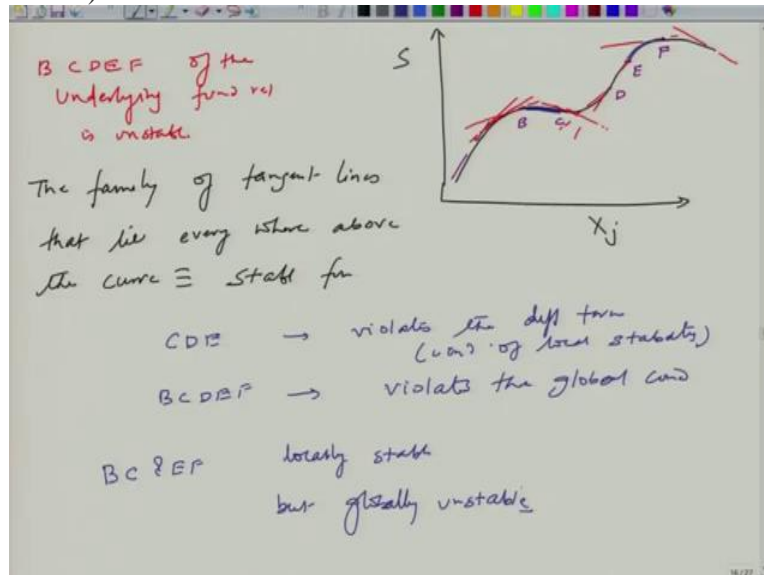 B C D E F of the
underlying fund rel
is unstabl.
The family of tangent lines
that lie every where above
the curve ≡ Stabl fun
CDE → violats the diff form
(cond of local stabality)
BCDEF → violats the global cond
BC & EF locally stable
but globally unstable
S
B
C
D
E
F
Xj
16/27